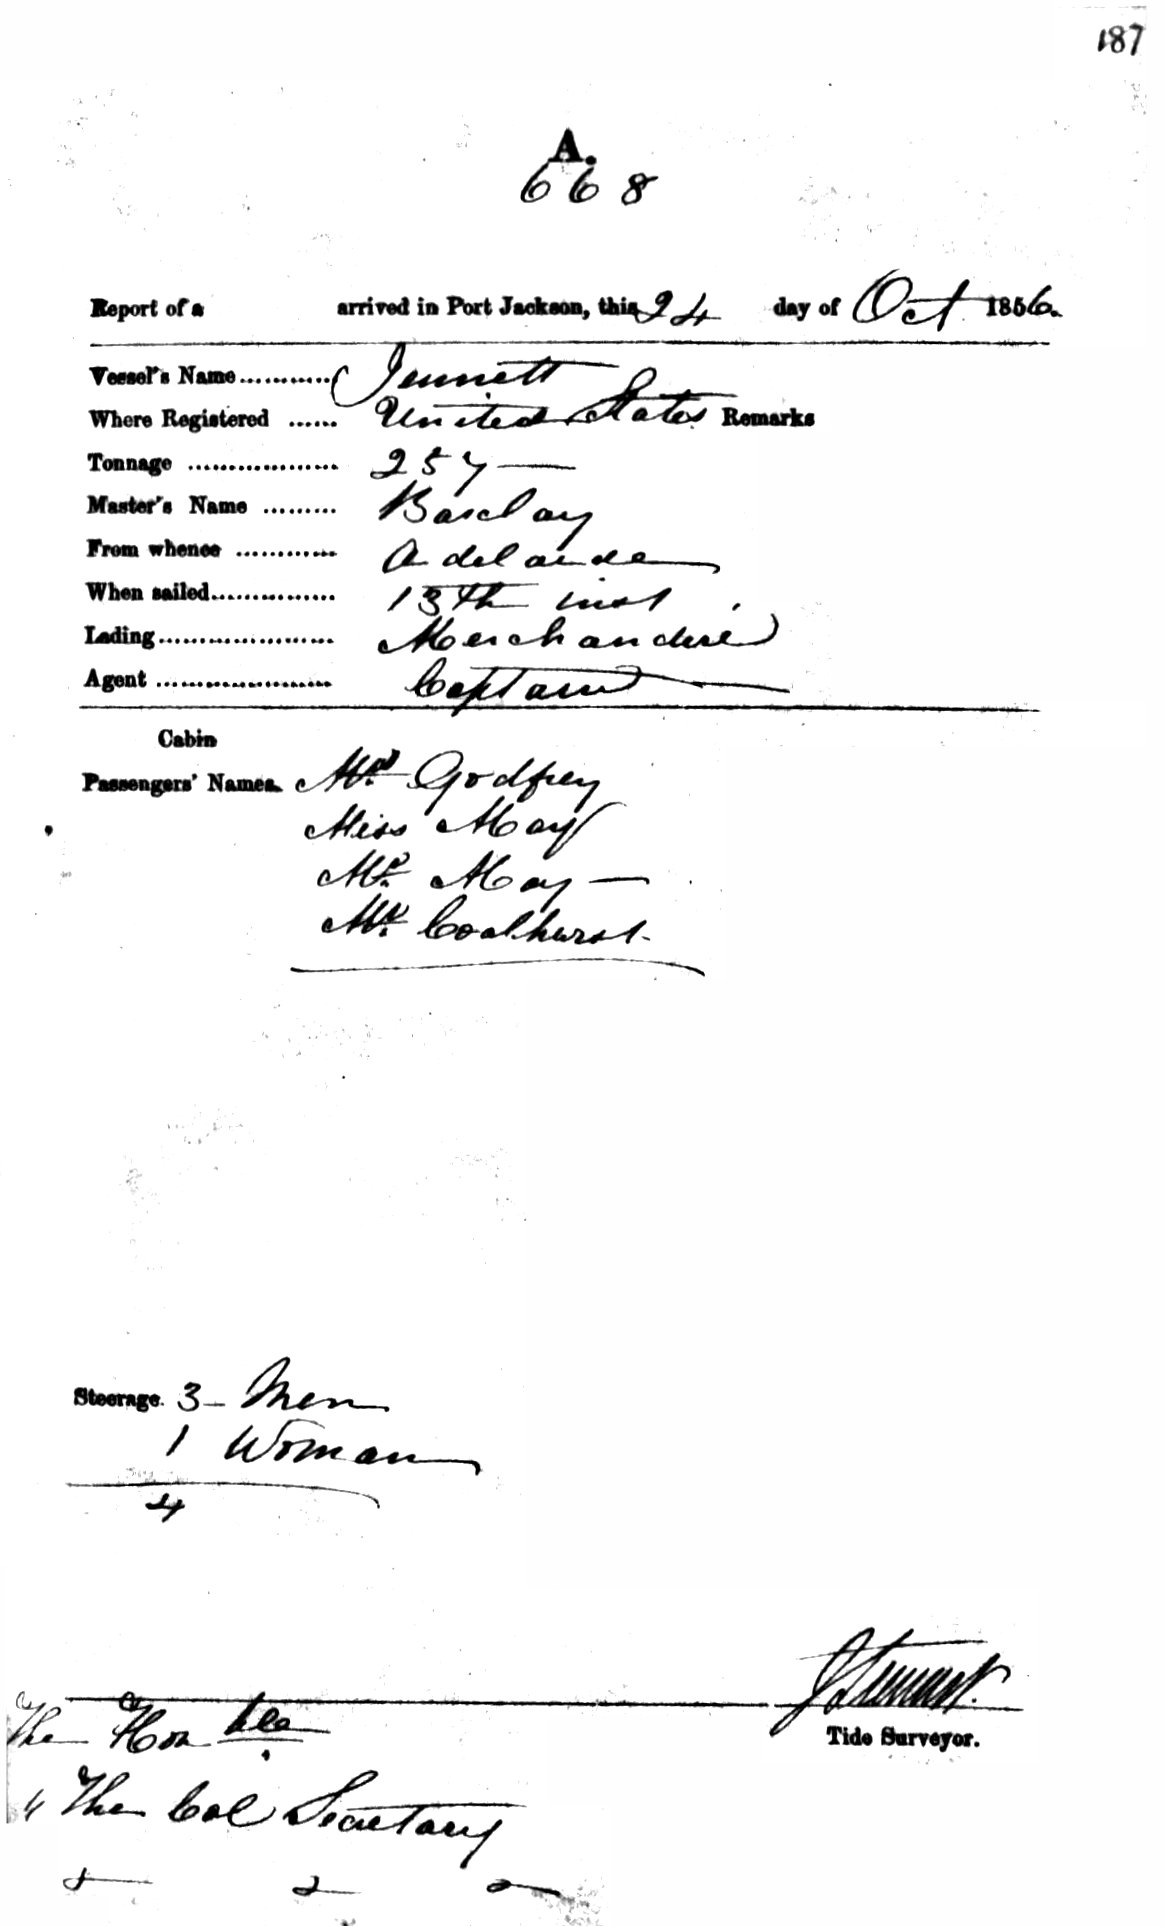 187
A.
668
Report of a arrived in Port Jackson, this 24 day of Oct 1856.
Vessel's Name ........... Jennett
Where Registered ...... United States Remarks
Tonnage ................... 257
Master's Name ......... Barclay
From whence ............ Adelaide
When sailed............... 13th inst
Lading...................... Merchandise
Agent ...................... Captain
Cabin
Passengers' Names. Mrs Godfrey
Miss May
Mr. May
Mr. Coalhurst.
Steerage. 3 - Men
1 Woman
4
J Stewart.
The Honble
Tide Surveyor.
" The Col Secretary